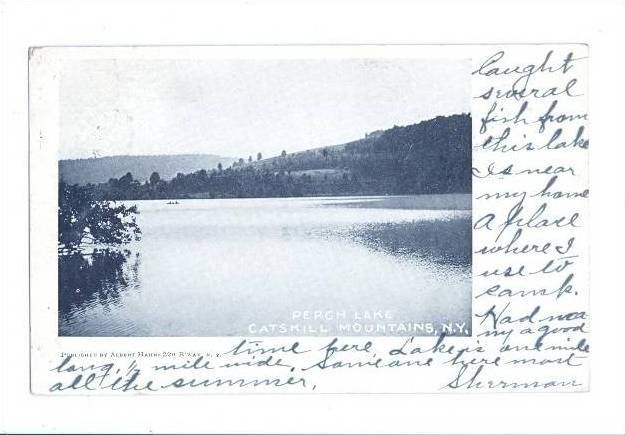 caught
several
fish from
this lake
Is near
my home
A place
where I
use to
camp.
Had
many a good
time here. Lake is one mile
long, ½ mile wide, Someone here most
all the summer.
Sherman
PERCH LAKE
CATSKILL MOUNTAINS, N.Y.
PUBLISHED BY ALBERT HAHN–220 B'WAY, N. Y.